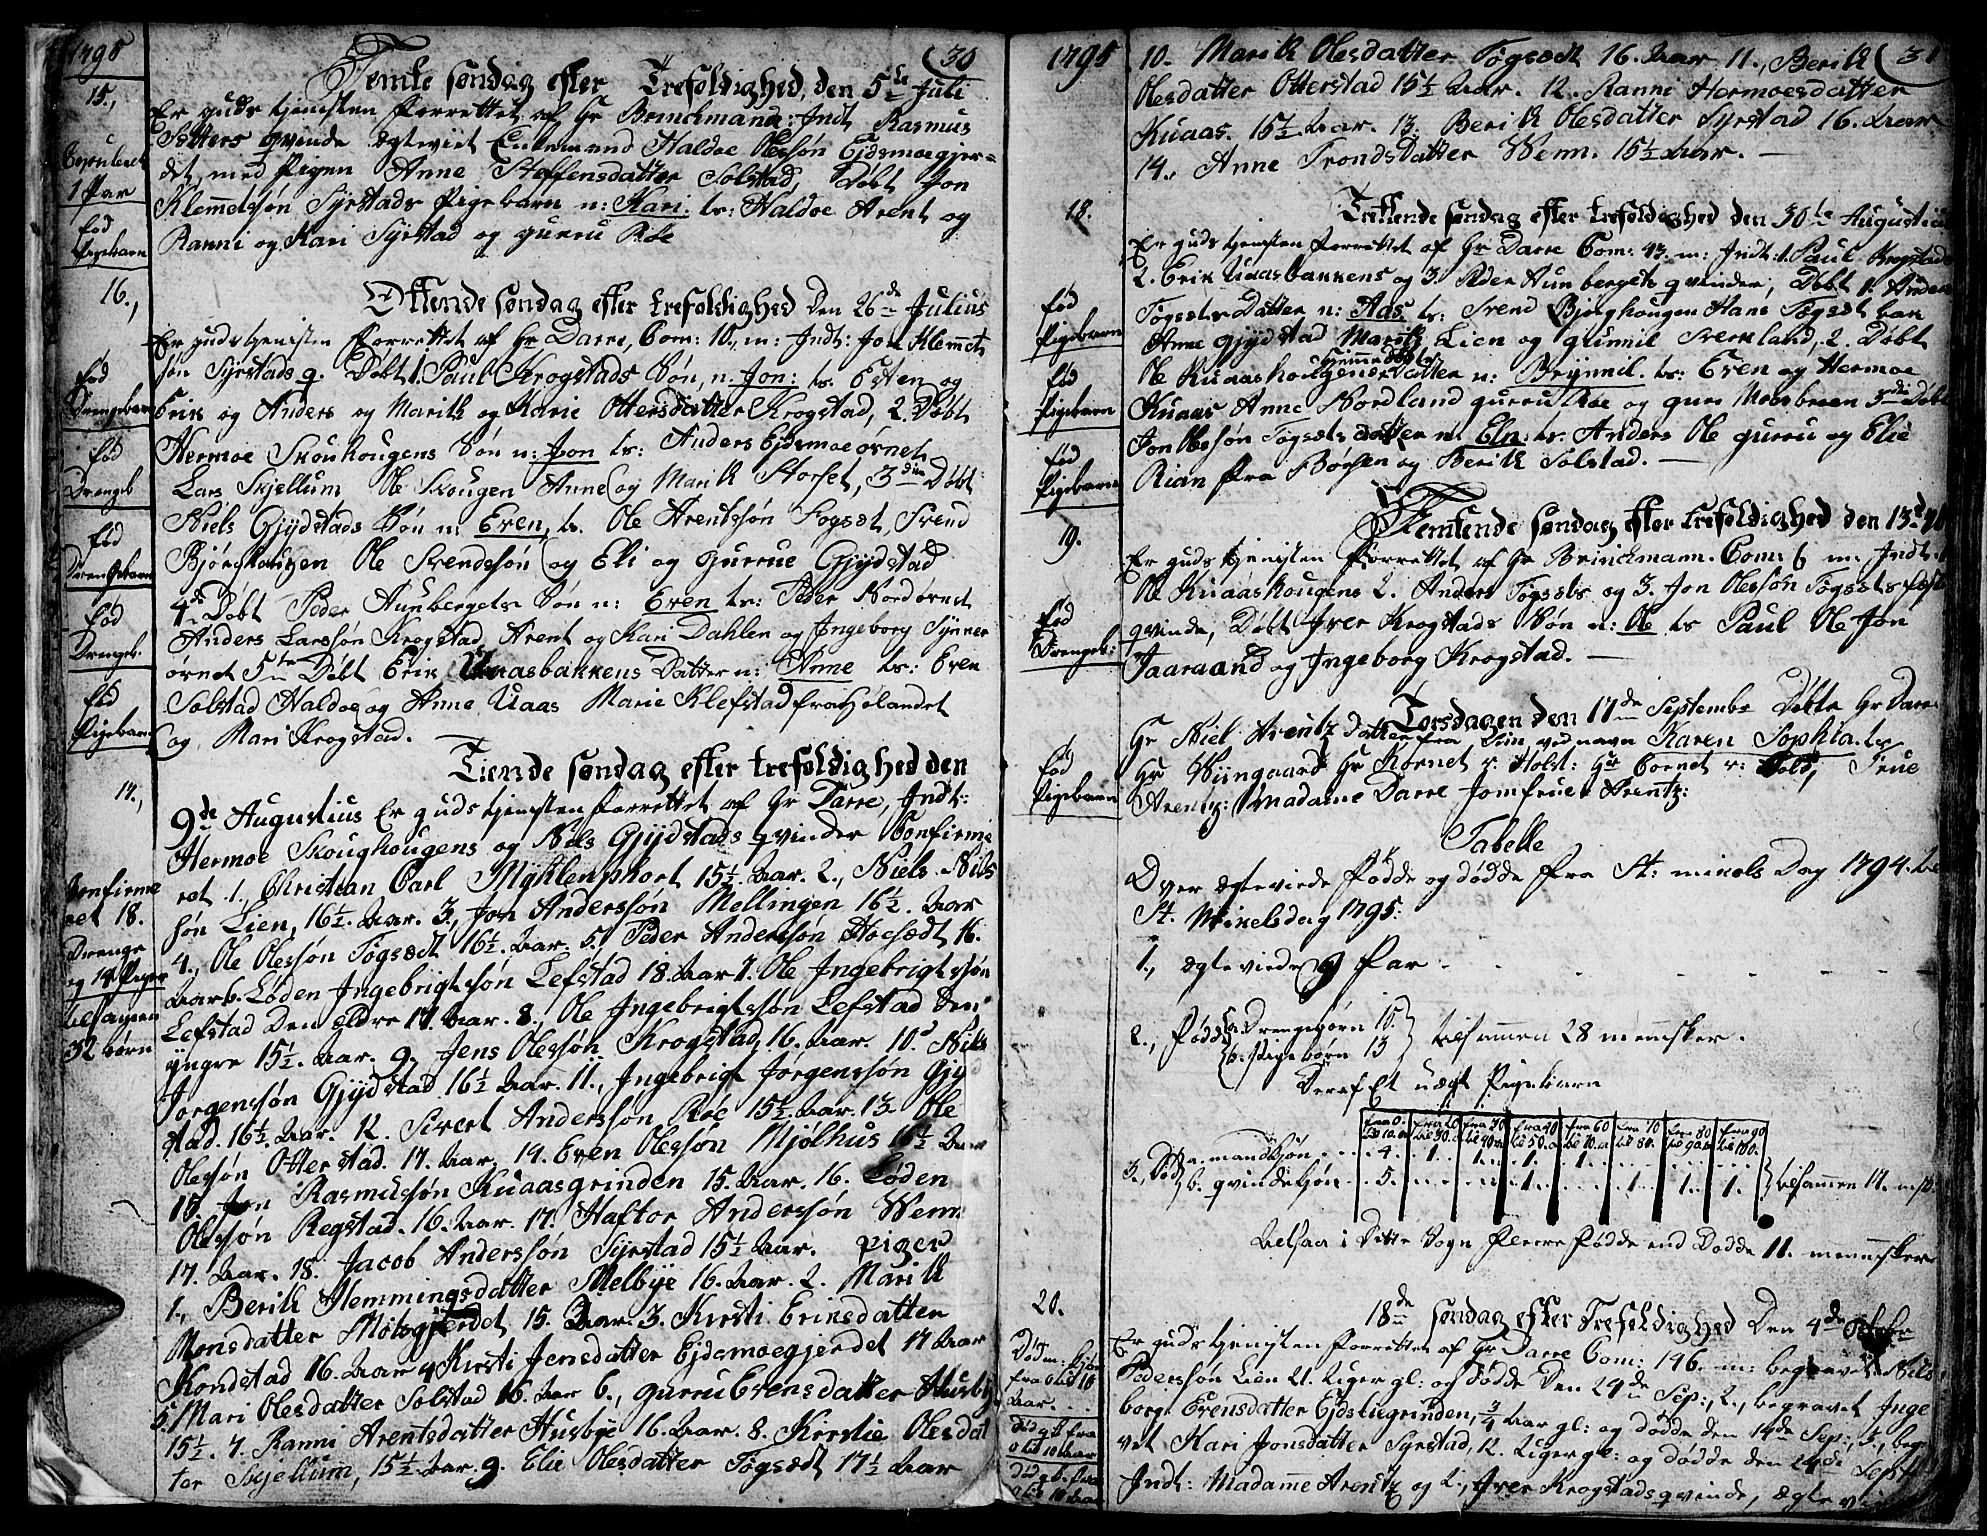 1795
30
15.,
Femte søndag efter Trefoldighed, den 5te Juli
Er guds tjenisten forrettet af Hr Brinchmann: Indt Rasmus
qvinde ægteviet Enkemand Haldoe Olessøn Ejdsmoegjer=
det, med Pigen Anne Steffensdatter Solstad, Døbt Jon
Klemmetsøn Syrstads Pigebarn n: Kari. tr: Haldoe Arent og
Ranni og Kari Syrstad og gurru Røe
1 Par
fød
Pigebarn
16.,
Ottende søndag efter trefoldighed Den 26de Julius
Er guds tjenisten forrettet af Hr Darre, Com: 10., m: Indt: Jon Klemmet
søn Syrstads q. Døbt 1. Paul Krogstads Søn, n: Jon: tr: Esten og
Erik og Anders og Marith og Karie Ottersdatter Krogstad, 2. Døbt
Hermoe Skouhougens Søn n: Jon tr: Anders Ejdsmoeørnet
Lars Skjellum, Ole Skougen Anne og Marith Storset, 3die Døbt
Niels Gjydstads Søn n: Even tr. Ole Arentssøn Fogsæt, Svend
Bjørghougen Ole Svendssøn og Eli og gurrue Gjydstad
4de Døbt Peder Aunbergets Søn n: Even tr: Peder Nordørnet
Anders Larssøn Krogstad, Arent og Kari Dahlen og Ingeborg Synner
ørnet 5te Døbt Erik Uaasbakkens Datter n: Anne tr: Even
Solstad Haldoe og Anne Uaas Marie Klefstad fra Hølandet
og Mari Krogstad.
fød
Drengebarn
fød
Drengeb
fød
Drengebarn
fød
Drengeb:
fød
Pigebarn
Tiende søndag efter trefoldighed den
9de Augustius Er guds tjenisten forrettet af Hr Darre, Indt:
Hermoe Skoughougens og Niels Gjydstads qvinder Confirme
ret 1., Christian Carl 15½ Aar. 2., Niels Niels
søn Lien, 16½ Aar. 3., Jon Anderssøn Mellingen 16½ Aar
4., Ole Olessøn Fogsædt 16½ Aar. 5. Peder Anderssøn Hofsædt 16.
Aar 6. Løden Ingebrigtssøn Lefstad 18. Aar 7. Ole Ingebrigtssøn
Lefstad Den eldre 17. Aar. 8. Ole Ingebrigtssøn Lefstad Den
yngre 15½. Aar. 9. Jens Olessøn Krogstad 16. Aar. 10. Niels
Jørgenssøn Gjydstad 16½ Aar. 11., Ingebrigt Jørgenssøn Gjyd
stad. 16½ Aar. 12. Sivert Anderssøn Røe 15½ Aar. 13 Ole
Olessøn Otterstad. 17. Aar. 14. Even Olessøn Mjølhus 16½ Aar
15. Jon Rasmussøn Kuaasgrinden 15. Aar. 16. Løden
Olessøn Regstad. 16. Aar. 17. Haftor Anderssøn Wenn
17. Aar. 18. Jacob Anderssøn Syrstad 15½ Aar. piger
1., Berith Hemmingsdatter Melbye 16. Aar. 2. Marith
Monsdatter 15. Aar. 3. Kirsti Eriksdatter
Kondstad 16. Aar 4 Kirsti Jensdatter Ejdsmoegjerdet 17 Aar
5. Mari Olesdatter Solstad 16. Aar 6., gurru Evensdatter Husby
15½. 7. Ranni Arentsdatter Husbye 16. Aar. 8. Kirstie Olesdat
ter Skjellum, 15½ Aar. 9. Elie Olesdatter Fogsædt 17½ Aar
Confirme
ret 18.
Drenge
og 14 Piger
tilsamen
32 børn
1795
31
10. Marith Olesdatter Fogsædt 16. Aar. 11., Berith
Olesdatter Otterstad 15½ Aar. 12. Ranni Hermoesdatter
Kuaas. 15½ Aar. 13. Berith Olesdatter Syrstad 16. Aar
14., Anne Trondsdatter Wenn. 15½ Aar. —
18.
Trettende søndag efter trefoldighed den 30te Augustius
Er guds tjenisten forrettet af Hr Darre Com: 43. m: Indt: 1. Paul Krogstads
2. Erik Uaasbakkens og 3. Peder Aunbergets qvinder, Døbt 1. Anders
Fogsæts Datter n: Aas tr: Svend Bjørghougen Hans Fogsæt
Anne Gjydstad Marith Lien og gunnil Sverkland, 2. Døbt
Ole Kuaashougens Datter n: Brynnil. tr: Even og Hermoe
Kuaas Anne Nordland gurru Røe og guri 3die Døbt
Jon Olessøn Fogsæts datter n: Eln: tr: Anders Ole gurru og Elie
Rian fra Børsen og Berith Solstad. —
fød
Pigebarn
fød
Pigebarn
fød
Pigebarn
19.
Femtende søndag efter trefoldighed den 13de
Er guds tjenisten forrettet af Hr Brinckmann. Com: 6 m: Indt: 1.
Ole Kuaashougens 2. Anders Fogsæts og 3. Jon Olessøn Fogsæts
qvinde, Døbt Iver Krogstads Søn n: Ole tr Paul Ole Jon
Jaaraand og Ingeborg Krogstad. —
fød
Drengeb:
Torsdagen den 17de Septembr Døbte Hr Darre
Hr Niel Arentz datter fra Vun ved navn Karen Sophia. tr
Hr Wiingaard Hr Kornet v: Holst: Hr Cornet v: True
Arentz: Madame Darre Jomfrue Arentz:
fød
Pigebarn
Tabelle
Over ægteviede fødde og dødde fra St: mikels Dag 1794. til
St. Mikelsdag 1795:
1., ægteviede 9 Par
2., Fødde a. Drengebørn 15.
b: Pigebørn 13
tilsammen 28 mennesker.
Deraf Et uægt Pigebarn
fra 0 til 10. a. fra 20 til 30. a. fra 30 til 40. a. fra 40 til 50. a. fra 60 til 70. a. fra 70 til 80. fra 80 til 90. a. fra 90 til 100.
3., Død a. mandkjøn . . . 4. 1. 1. 1. 1.
b. qvindekjøn. . . 5. 1. 1. 1. 1.
tilsamen 17. msk
Altsaa i Dette Sogn fleere fødde end Dødde 11. mennesker
20.
18de søndag efter Trefoldighed Den 4de Octobr
Er guds tjenisten forrettet af Hr Darre Com: 146. m: begravet Nils
Pederssøn Lien 21. Uger gl: og dødde Den 24de Sep:, 2., begravet Inge
borg Evensdatter Ejdsliegrinden, ¾ Aar gl: og dødde den 14de Sep:, 3., begra
vet Kari Jonsdatter Syrstad, 12. Uger gl: og dødde den 24de Sept
Indt: Madamme Arentz og 2., Iver Krogstads qvinde, ægte
Død m: kjøn
fra 0 til 10
Aar. . .
død q k fra
0 til 10 Aar
død q k. fra
0 til 10 Aar